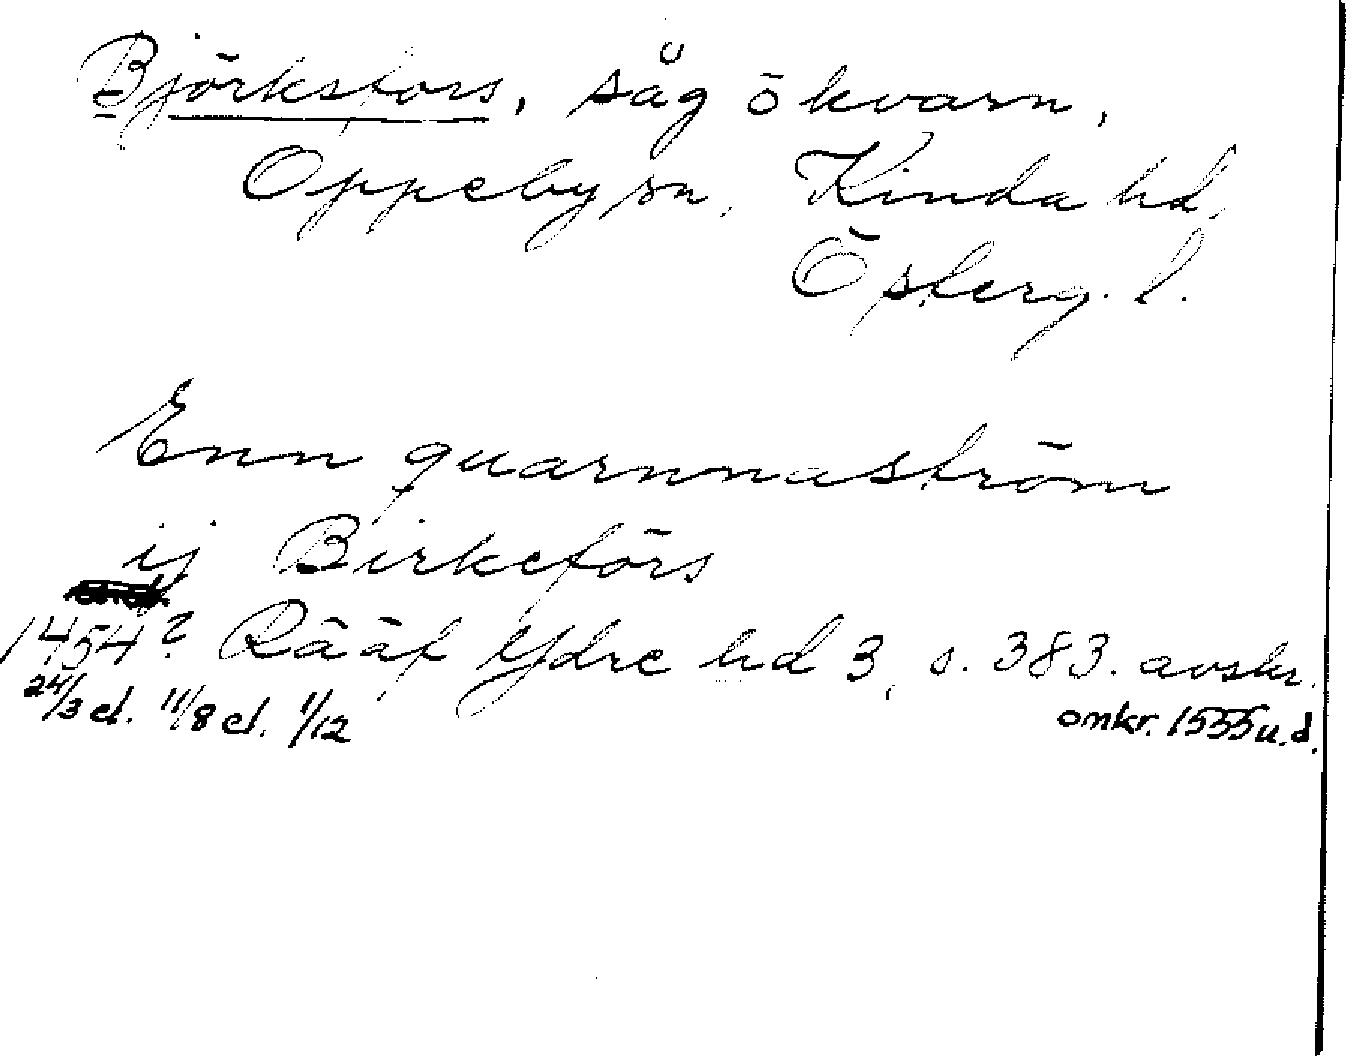 Björksfors, såg o kvarn,
Oppeby sn, Kinda hd,
Österg. l.
Enn quarnnaström
ij Birkefórs
1454? Rääf Ydre hd 3, s. 383. avskr.
24/3 el. 11/8 el. 1/12 omkr. 1555 u.d.